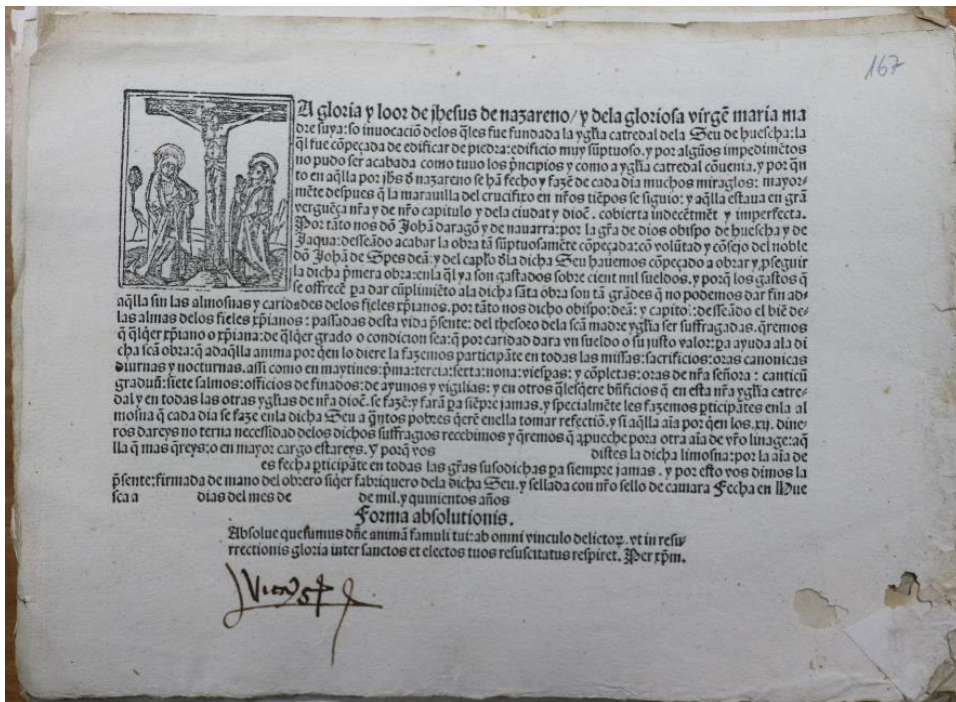 167
A gloria y loor de jhesus de nazareno/ y dela gloriosa virgẽ maria ma
dre suya: so inuocaciõ delos q̃les fue fundada la yg̃lia catredal dela Seu de huescha: la
q̃l fue cõpeçada de edificar de piedra: edificio muy sũptuoso. y por algũos impedimẽtos
no pudo ser acabada como tuuo los p̃ncipios y como a yg̃lia catredal cõuenia. y por q̃n
to en aq̃lla por jh̃s đ nazareno se hã fecho y fazẽ de cada dia muchos miraglos: mayor-
mẽte despues q̃ la marauilla del crucifixo en nr̃os tiẽpos se siguio: y aq̃lla estaua en grã
verguẽça nr̃a y de nr̃o capitulo y dela ciudat y dioc̃. cobierta indecẽtmẽt y imperfecta.
Por tãto nos dõ Johã daragõ y de nauarra: por la gr̃a de dios obispo de huescha y de
Jaqua: desseãdo acabar la obra tã sũptuosamẽte cõpeçada: cõ volũtad y cõsejo del noble
dõ Johã de Spes deã: y del cap̃lo đla dicha Seu hauemos cõpeçado a obrar y ꝓseguir
la dicha p̃mera obra: enla q̃l ya son gastados sobre cient mil sueldos. y porq̃ los gastos q̃
se offrecẽ ꝑa dar cũplimiẽto ala dicha sãta obra son tã grãdes q̃ no podemos dar fin ad-
aq̃lla sin las almosnas y caridades delos fieles xp̃ianos. por tãto nos dicho obispo: deã: y capitol: desseãdo el biẽ de-
las almas delos fieles xp̃ianos: passadas desta vida p̃sente: del thesoro dela scã madre yg̃lia ser suffragadas. q̃remos
q̃ q̃lq̃er xp̃iano o xp̃iana: de q̃lq̃er grado o condicion sea: q̃ por caridad dara vn sueldo o su justo valor: ꝑa ayuda ala di
cha scã obra: q̃ adaq̃lla anima por q̃en lo diere la fazemos participãte en todas las missas: sacrificios: oras canonicas
diurnas y nocturnas. assi como en maytines: p̃ma: tercia: sexta: nona: viespas: y cõpletas: oras de nr̃a señora: canticũ
graduũ: siete salmos: officios de finados: de ayunos y vigilias: y en otros q̃lesq̃ere bñficios q̃ en esta nr̃a yg̃lia catre-
dal y en todas las otras yg̃lias de nr̃a dioc̃. se fazẽ: y farã ꝑa siẽpre jamas. y specialmẽte les fazemos ꝑticipãtes enla al
mosna q̃ cada dia se faze enla dicha Seu a q̃ntos pobres q̃erẽ enella tomar refectiõ. y si aq̃lla aĩa por q̃en los. xij. dine-
ros dareys no terna necessidad delos dichos suffragios recebimos y q̃remos q̃ aꝓueche por otra aĩa de vr̃o linage: aq̃
lla q̃ mas q̃reys: o en mayor cargo estareys. y porq̃ vos distes la dicha limosna: por la aĩa de
es fecha ꝑticipãte en todas las gr̃as susodichas ꝑa siempre jamas. y por esto vos dimos la
p̃sente: firmada de mano del obrero siq̃er fabriquero dela dicha Seu. y sellada con nr̃o sello de camara Fecha en Hue
sca a dias del mes de de mil. y quinientos años
Forma absolutionis.
Absolue quesumus dñe animã famuli tui: ab omni vinculo delictoꝝ. vt in resu-
rrectionis gloria inter sanctos et electos tuos resuscitatus respiret. Per xp̃m.